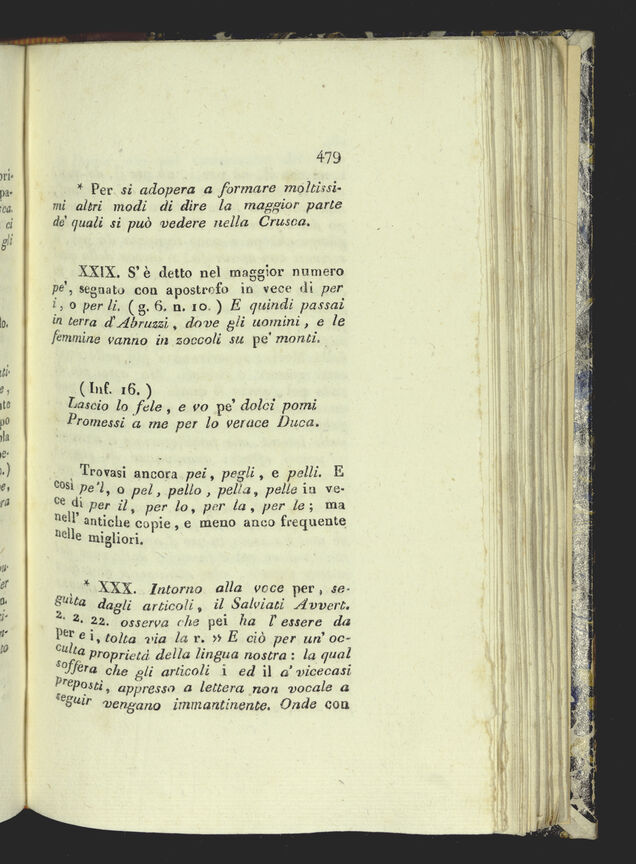 479
* Per si adopera a formare moltissi-
mi altri modi di dire la maggior parte
de' quali si può vedere nella Crusca.
XXIX. S'è detto nel maggior numero
pe', segnato con apostrofo in vece di per
i, o per li. ( g. 6. n. 10. ) E quindi passai
in terra d'Abruzzi, dove gli uomini, e le
femmine vanno in zoccoli su pe' monti.
( Inf. 16. )
Lascio lo fele, e vo pe' dolci pomi
Promessi a me per lo verace Duca.
Trovasi ancora pei, pegli, e pelli. E
così pe'l, o pel, pello, pella, pelle in ve-
ce di per il, per lo, per la, per le; ma
nell' antiche copie, e meno anco frequente
nelle migliori.
* XXX. Intorno alla voce per, se-
guita dagli articoli, il Salviati Avvert.
2. 2. 22. osserva che pei ha l'essere da
per e i, tolta via la r. » E ciò per un' oc-
culta proprietà della lingua nostra: la qual
soffera che gli articoli i ed il a' vicecasi
preposti, appresso a lettera non vocale a
seguir vengano immantinente. Onde con